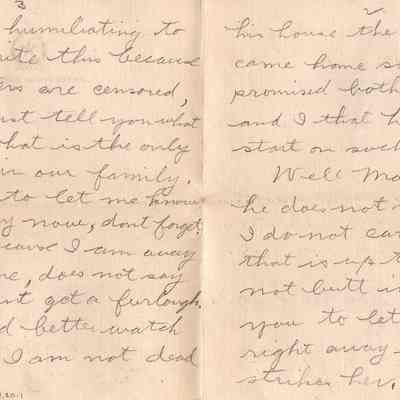 3
humiliating to
rite this because
ers are censored,
ust tell you what
hat is the only
in our family.
to let me know
y now, dont forget
cause I am away
me, does not say
nt get a furlough.
d better watch
I am not dead
.20-1
2.
his house the
came home s
promised both
and I that h
start on such
Well Ma
he does not
I do not car
that is up t
not butt i
you to let
right away
strikes her,